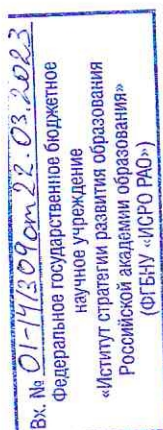 Вх. № 01-14/309 от 22.03.2023
Федеральное государственное бюджетное
научное учреждение
«Иститут стратегии развития образования
Российской академии образования»
(ФГБНУ «ИСРО РАО»)